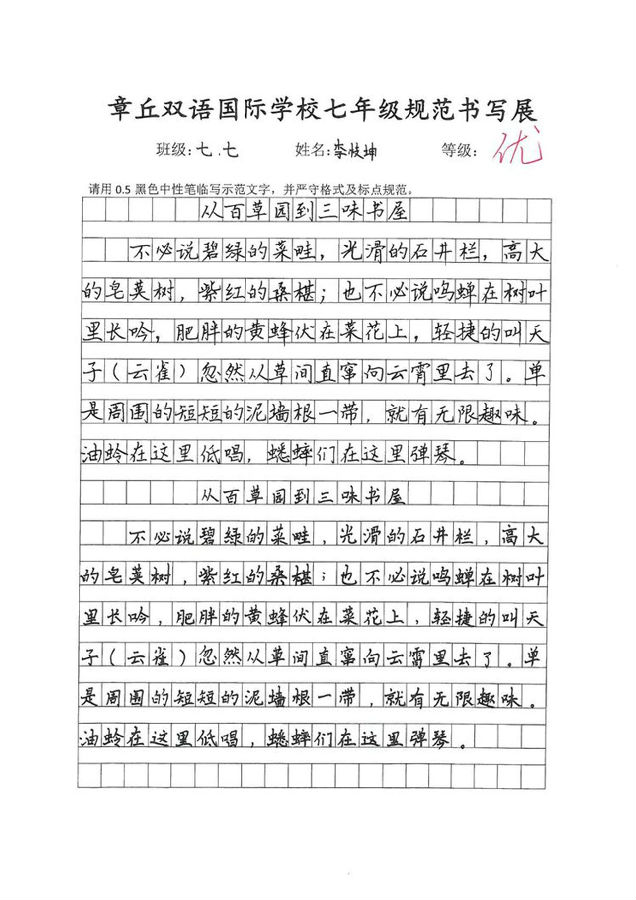 章丘双语国际学校七年级规范书写展
班级:七.七 姓名:李坤 等级:优
请用 0.5 黑色中性笔临写示范文字，并严守格式及标点规范。
从百草园到三味书屋
不必说碧绿的菜畦，光滑的石井栏，高大
的皂荚树，紫红的桑椹；也不必说鸣蝉在树叶
里长吟，肥胖的黄蜂伏在菜花上，轻捷的叫天
子（云雀）忽然从草间直窜向云霄里去了。单
是周围的短短的泥墙根一带，就有无限趣味。
油蛉在这里低唱，蟋蟀们在这里弹琴。
从百草园到三味书屋
不必说碧绿的菜畦，光滑的石井栏，高大
的皂荚树，紫红的桑椹；也不必说鸣蝉在树叶
里长吟，肥胖的黄蜂伏在菜花上，轻捷的叫天
子（云雀）忽然从草间直窜向云霄里去了。单
是周围的短短的泥墙根一带，就有无限趣味。
油蛉在这里低唱，蟋蟀们在这里弹琴。